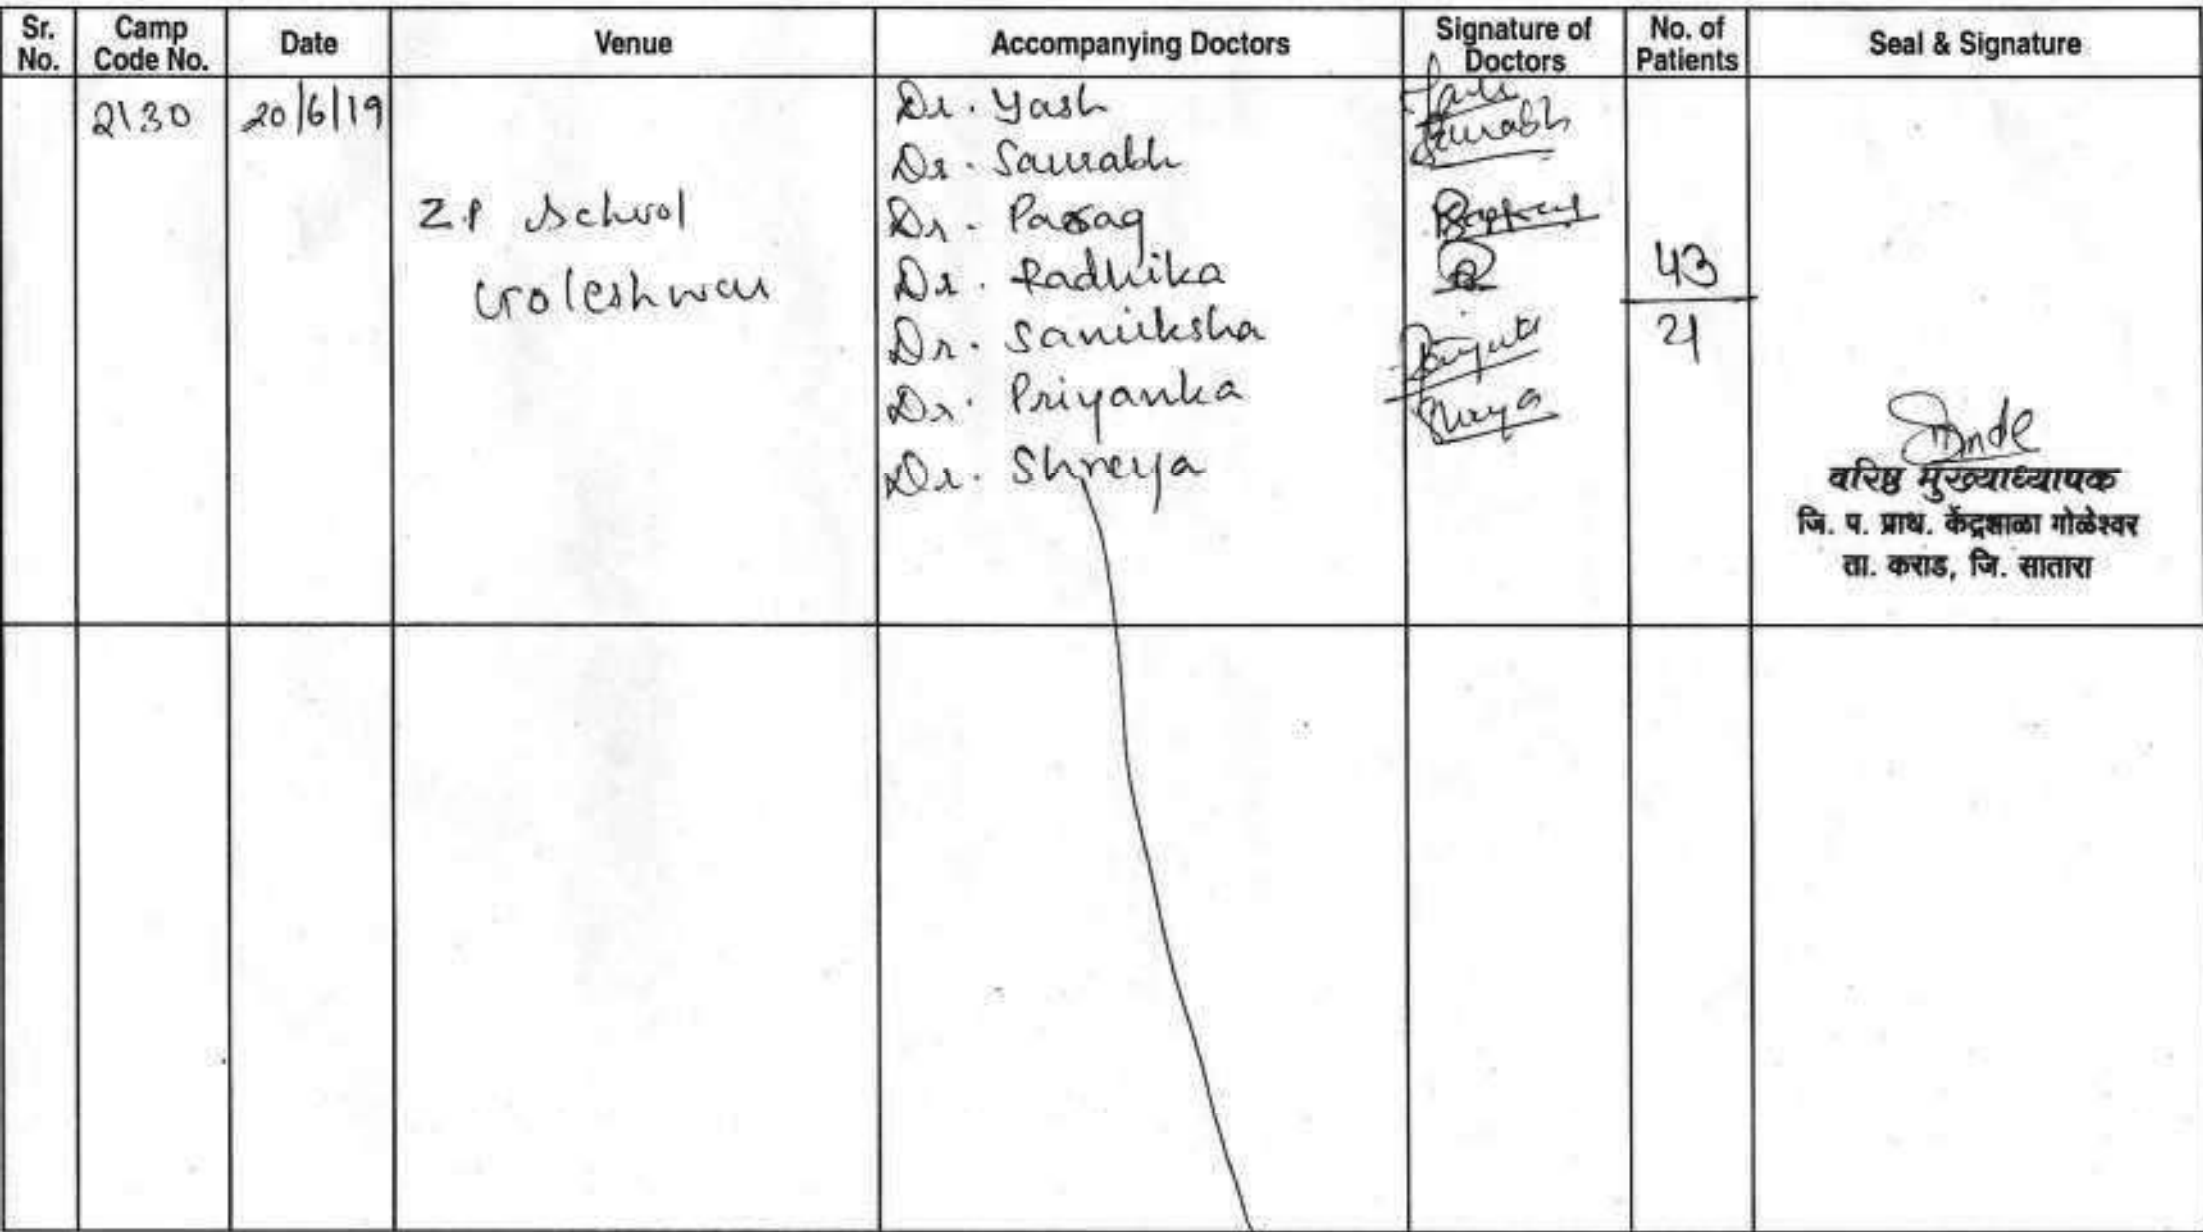 Sr. No. Camp Code No. Date Venue Accompanying Doctors Signature of Doctors No. of Patients Seal & Signature
2130 20/6/19
Z.P School
Goleshwar
Dr. Yash
Dr. Saurabh
Dr. Parag
Dr. Radhika
Dr. Samiksha
Dr. Priyanka
Dr. Shreya
Saurabh
Shreya
43
21
वरिष्ठ मुख्याध्यापक
जि. प. प्राथ. केंद्रशाळा गोळेश्वर
ता. कराड, जि. सातारा